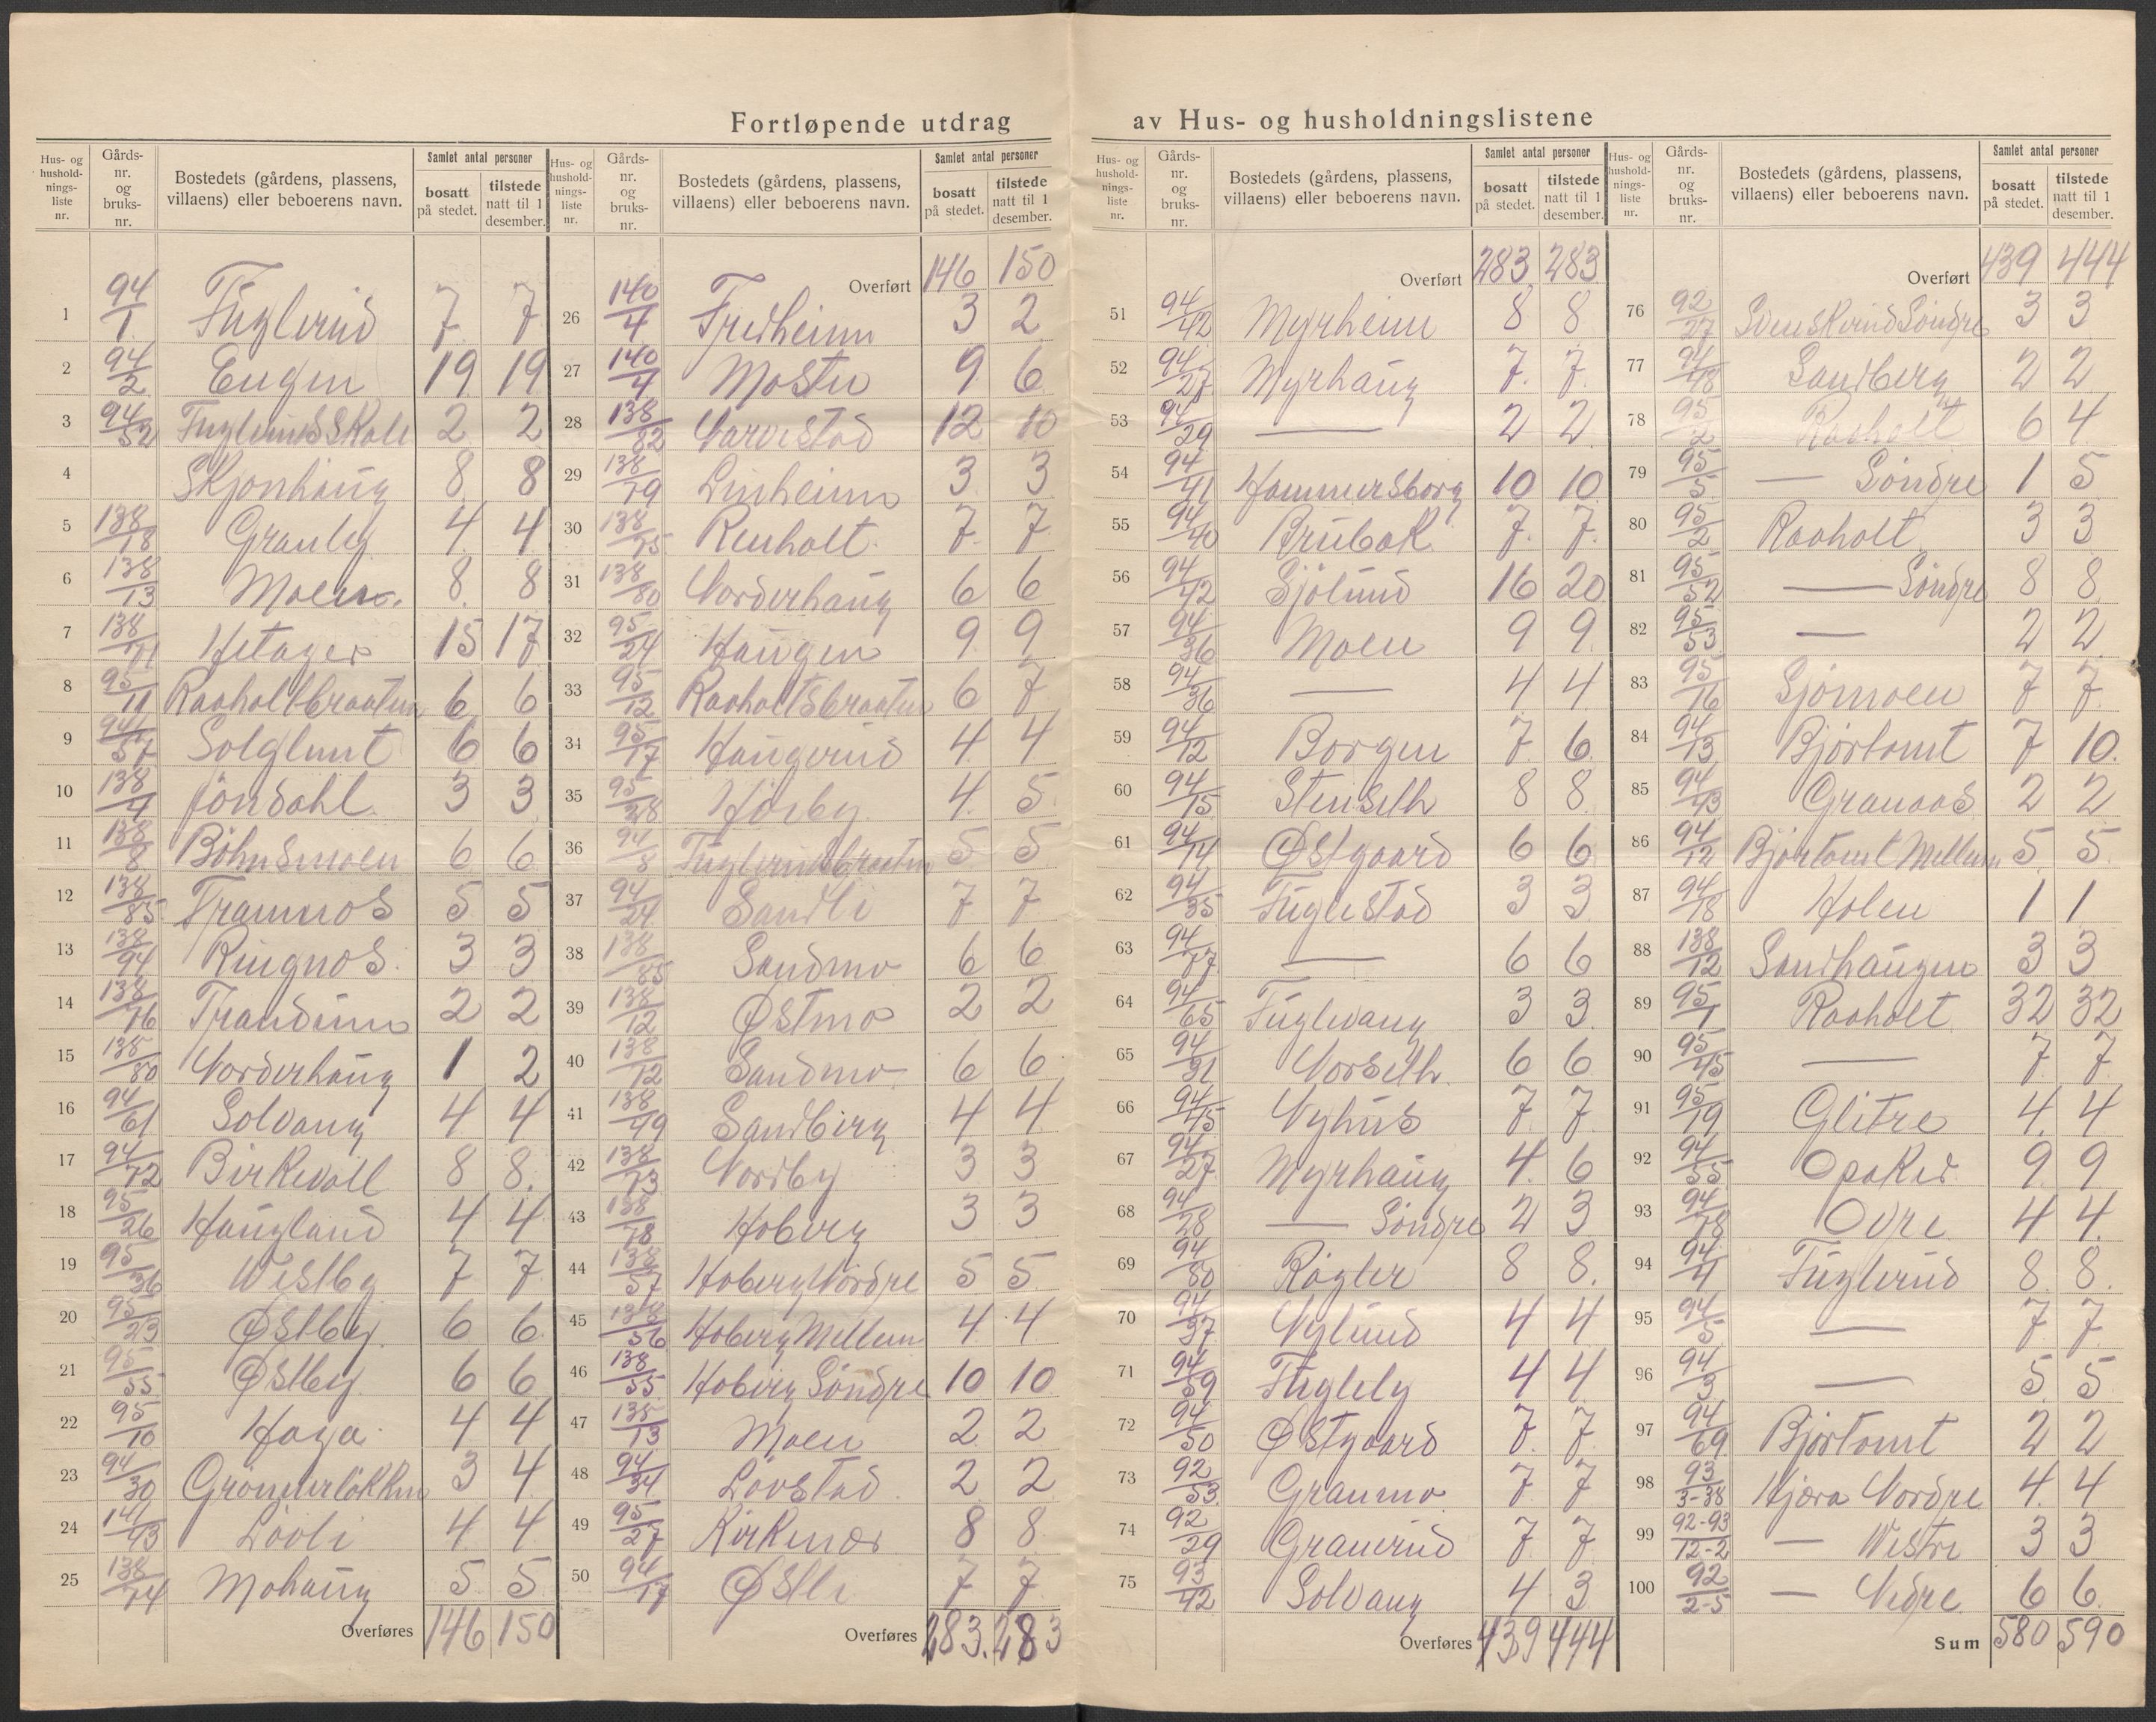 Fortløpende utdrag av Hus- og husholdningslistene
Hus- og hushold-nings-liste nr. Gårds-nr. og bruks-nr. Bostedets (gårdens, plassens, villaens) eller beboerens navn. Samlet antal personer bosatt på stedet. tilstede natt til 1 desember.
1 94/1 Fuglerud 7 7
2 94/2 Engen 19 19
3 94/52 Fuglerud Skole 2 2
4 Skjonhaug 8 8
5 138/18 Granly 4 4
6 138/13 Moen 8 8
7 138/71 Hetager 15 17
8 95/11 Raaholtbraaten 6 6
9 94/57 Solglimt 6 6
10 138/4 Jöndahl 3 3
11 138/8 Böhnsmoen 6 6
12 138/85 Tramnos 5 5
13 138/94 Ringnos 3 3
14 138/76 Trandum 2 2
15 138/80 Norderhaug 1 2
16 94/61 Solvang 4 4
17 94/72 Birkevoll 8 8.
18 95/26 Haugland 4 4
19 95/36 Westby 7 7
20 95/23 Østby 6 6
21 95/55 Østby 6 6
22 95/10 Haga 4 4
23 94/30 Grønnerlökken 3 4
24 141/43 Lövli 4 4
25 138/74 Mohaug 5 5
Overføres 146 150
Hus- og hushold-nings-liste nr. Gårds-nr. og bruks-nr. Bostedets (gårdens, plassens, villaens) eller beboerens navn. Samlet antal personer bosatt på stedet. tilstede natt til 1 desember.
Overført 146 150
26 140/4 Fredheim 3 2
27 140/4 Mostu 9 6
28 138/82 Narvestad 12 10
29 138/19 Linheim 3 3
30 138/75 Renholt 7 7
31 138/80 Norderhaug 6 6
32 95/24 Haugen 9 9
33 95/12 Raaholtsbraaten 6 7
34 95/17 Haugerud 4 4
35 95/28 Hörby 4 5
36 94/8 Fuglerudbraaten 5 5
37 94/24 Sandli 7 7
38 138/85 Sandmo 6 6
39 138/12 Østmo 2 2
40 138/12 Sandmo 6 6
41 138/49 Sandberg 4 4
42 138/73 Nordby 3 3
43 138/78 Hoberg 3 3
44 138/57 Hoberg Nordre 5 5
45 138/56 Hoberg Mellem 4 4
46 138/55 Hoberg Söndre 10 10
47 138/13 Moen 2 2
48 94/34 Lövstad 2 2
49 95/27 Kirkenær 8 8
50 94/17 Østli 7 7
Overføres 283. 283
Hus- og hushold-nings-liste nr. Gårds-nr. og bruks-nr. Bostedets (gårdens, plassens, villaens) eller beboerens navn. Samlet antal personer bosatt på stedet. tilstede natt til 1 desember.
Overført 283 283
51 94/42 Myrheim 8 8
52 94/27 Myrhaug 7 7
53 94/29 — 2 2
54 94/41 Hammersborg 10 10
55 94/40 Brubak 7 7
56 94/42 Sjölund 16 20
57 94/36 Moen 9 9
58 94/36 — 4 4
59 94/12 Borgen 7 6
60 94/15 Stenseth 8 8
61 94/14 Østgaard 6 6
62 94/35 Fuglestad 3 3
63 94/77 — 6 6
64 94/65 Fuglevang 3 3
65 94/31 Norseth 6 6
66 94/45 Nyhus 7 7
67 94/27 Myrhaug 4 6
68 94/28 — Söndre 2 3
69 94/80 Rögler 8 8.
70 94/37 Nylund 4 4
71 94/59 Fuglely 4 4
72 94/50 Østgaard 7 7
73 92/53 Granmo 7 7
74 92/29 Granerud 7 7
75 93/42 Solvang 4 3
Overføres 439 444
Hus- og hushold-nings-liste nr. Gårds-nr. og bruks-nr. Bostedets (gårdens, plassens, villaens) eller beboerens navn. Samlet antal personer bosatt på stedet. tilstede natt til 1 desember.
Overført 439 444
76 92/27 Svenskerud Söndre 3 3
77 94/48 Sandberg 2 2
78 95/2 Raaholt 6 4
79 95/5 — Söndre 1 5
80 95/2 Raaholt 3 3
81 95/52 — Söndre 8 8
82 95/53 — 2 2
83 95/16 Sjömoen 7 7
84 94/13 Björtomt 7 10
85 94/43 Granaas 2 2
86 94/12 Björtomt Mellem 5 5
87 94/18 Holen 1 1
88 138/12 Sandhaugen 3 3
89 95/1 Raaholt 32 32
90 95/45 — 7 7
91 95/19 Glitre 4 4
92 94/55 Opaker 9 9
93 94/78 Ovre 4 4
94 94/4 Fuglerud 8 8
95 94/5 — 7 7
96 94/3 — 5 5
97 94/69 Björtomt 2 2
98 93/3-38 Hjæra Nordre 4 4
99 92-93/12-2 — Westre 3 3
100 92/2-5 — Nedre 6 6
Sum 580 590